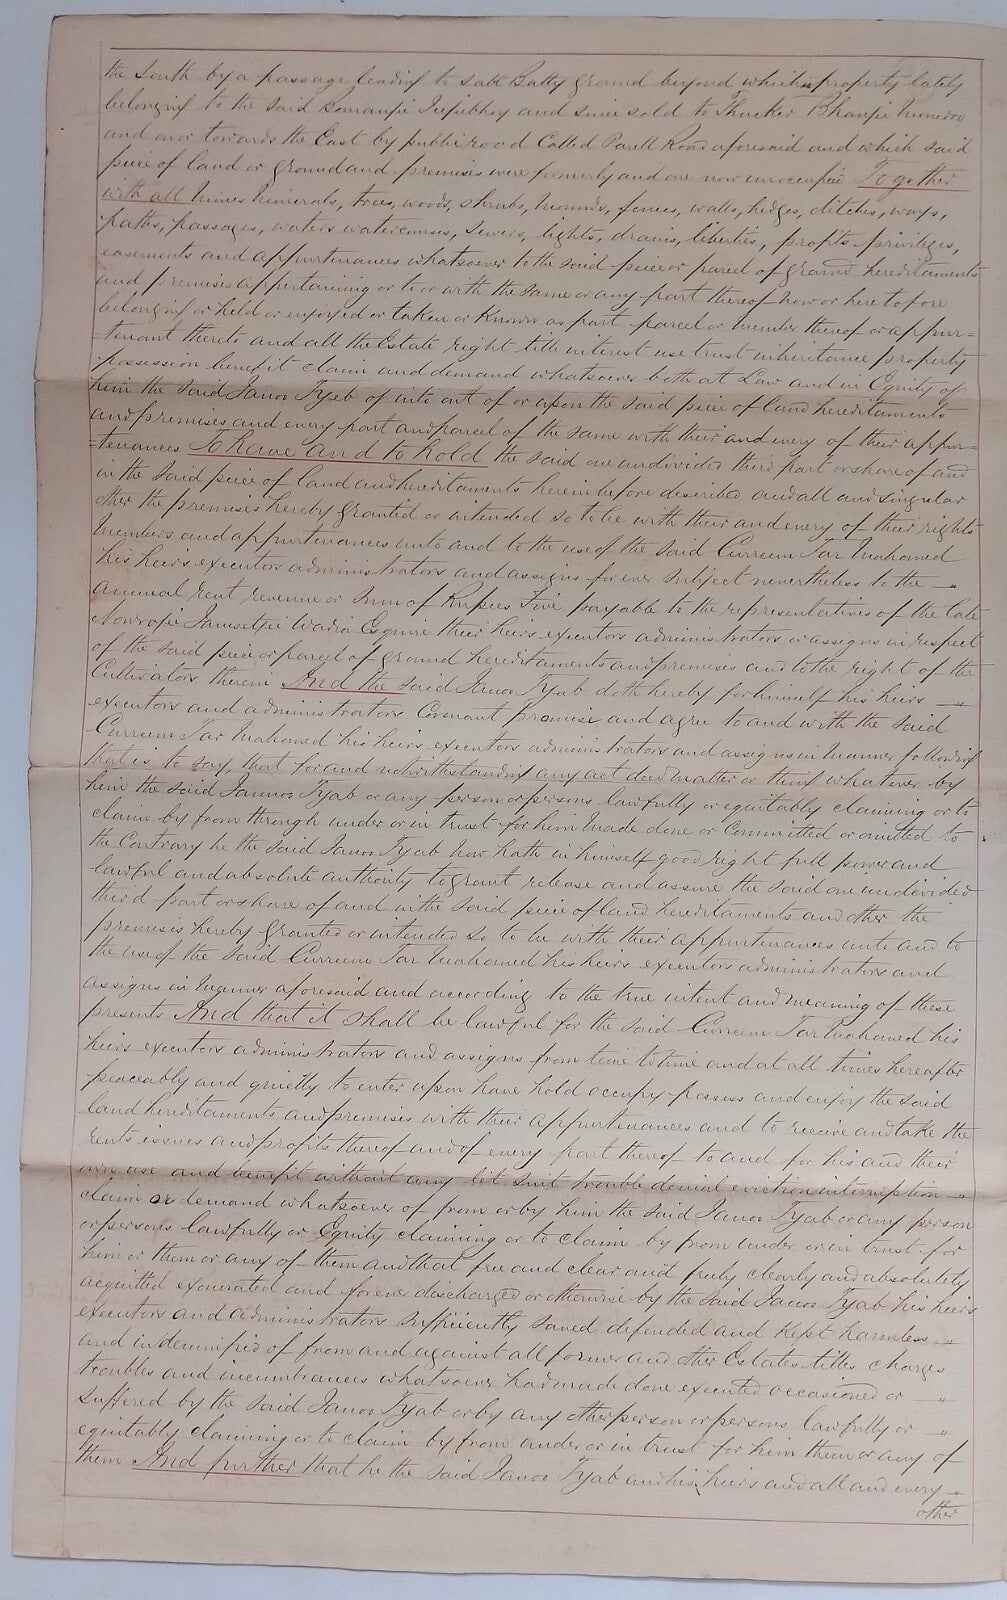 the South by a passage leading to salt Batty ground beyond which is property lately
belonging to the said Bomanjee Jejeebhoy and since sold to Thucker Bhanjee
and on or towards the East by public road Called Parell Road aforesaid and which said
piece of land or ground and premises were formerly and are now unoccupied Together
with all mines minerals, trees, woods, shrubs, mounds, fences, walls, hedges, ditches, ways,
paths, passages, waters watercourses, sewers, lights, drains, liberties, profits privileges,
easements and appurtenances whatsoever to the said piece or parcel of ground hereditaments
and premises appertaining or to or with the same or any part thereof now or heretofore
belonging or held or enjoyed or taken or Known as part parcel or member thereof or appur-
=tenant thereto and all the Estate right title interest use trust inheritance property
possession benefit claim and demand whatsoever both at Law and in Equity of
him the said Janoo Tyab of into out of or upon the said piece of land hereditaments
and premises and every part and parcel of the same with their and every of their appur-
=tenances To have and to hold the said one undivided third part or share of and
in the said piece of land and hereditaments herein before described and all and singular
other the premises hereby granted or intended so to be with their and every of their rights
members and appurtenances unto and to the use of the said Curreem Jar Mahomed
his heirs executors administrators and assigns for ever subject nevertheless to the — "
annual rent revenue or sum of Rupees Five payable to the representatives of the late
Nowrojee Jamsetjee Wadia Esquire their heirs executors administrators or assigns in respect
of the said piece or parcel of ground hereditaments and premises and to the right of the
Cultivators therein And the said Janoo Tyab doth hereby for himself his heirs — "
executors and administrators Covenant promise and agree to and with the said
Curreem Jar Mahomed his heirs executors administrators and assigns in manner following
that is to say, that for and notwithstanding any act deed matter or thing whatever by
him the said Janoo Tyab or any person or persons lawfully or equitably claiming or to
claim by from through under or in trust for him made done or Committed or omitted to
the Contrary he the said Janoo Tyab now hath in himself good right full power and
lawful and absolute authority to grant release and assure the said one undivided
third part or share of and in the said piece of land hereditaments and other the
premises hereby granted or intended so to be with their appurtenances unto and to
the use of the said Curreem Jar Mahomed his heirs executors administrators and
assigns in manner aforesaid and according to the true intent and meaning of these
presents And that it shall be lawful for the said Curreem Jar Mahomed his
heirs executors administrators and assigns from time to time and at all times hereafter
peaceably and quietly to enter upon have hold occupy possess and enjoy the said
land hereditaments and premises with their appurtenances and to receive and take the
rents issues and profits thereof and of every part thereof to and for his and their
own use and benefit without any let suit trouble denial eviction interruption — "
claim or demand whatsoever of from or by him the said Janoo Tyab or any person
or persons lawfully or Equity claiming or to claim by from under or in trust for
him or them or any of them and that free and clear and freely clearly and absolutely
acquitted exonerated and forever discharged or otherwise by the said Janoo Tyab his heirs
executors and administrators sufficiently saved defended and kept harmless — "
and indemnified of from and against all former and other Estates titles charges
troubles and incumbrances whatsoever had made done executed occasioned or — "
suffered by the said Janoo Tyab or by any other person or persons lawfully or — "
equitably claiming or to claim by from under or in trust for him them or any of
them And further that he the said Janoo Tyab and his heirs and all and every — "
other